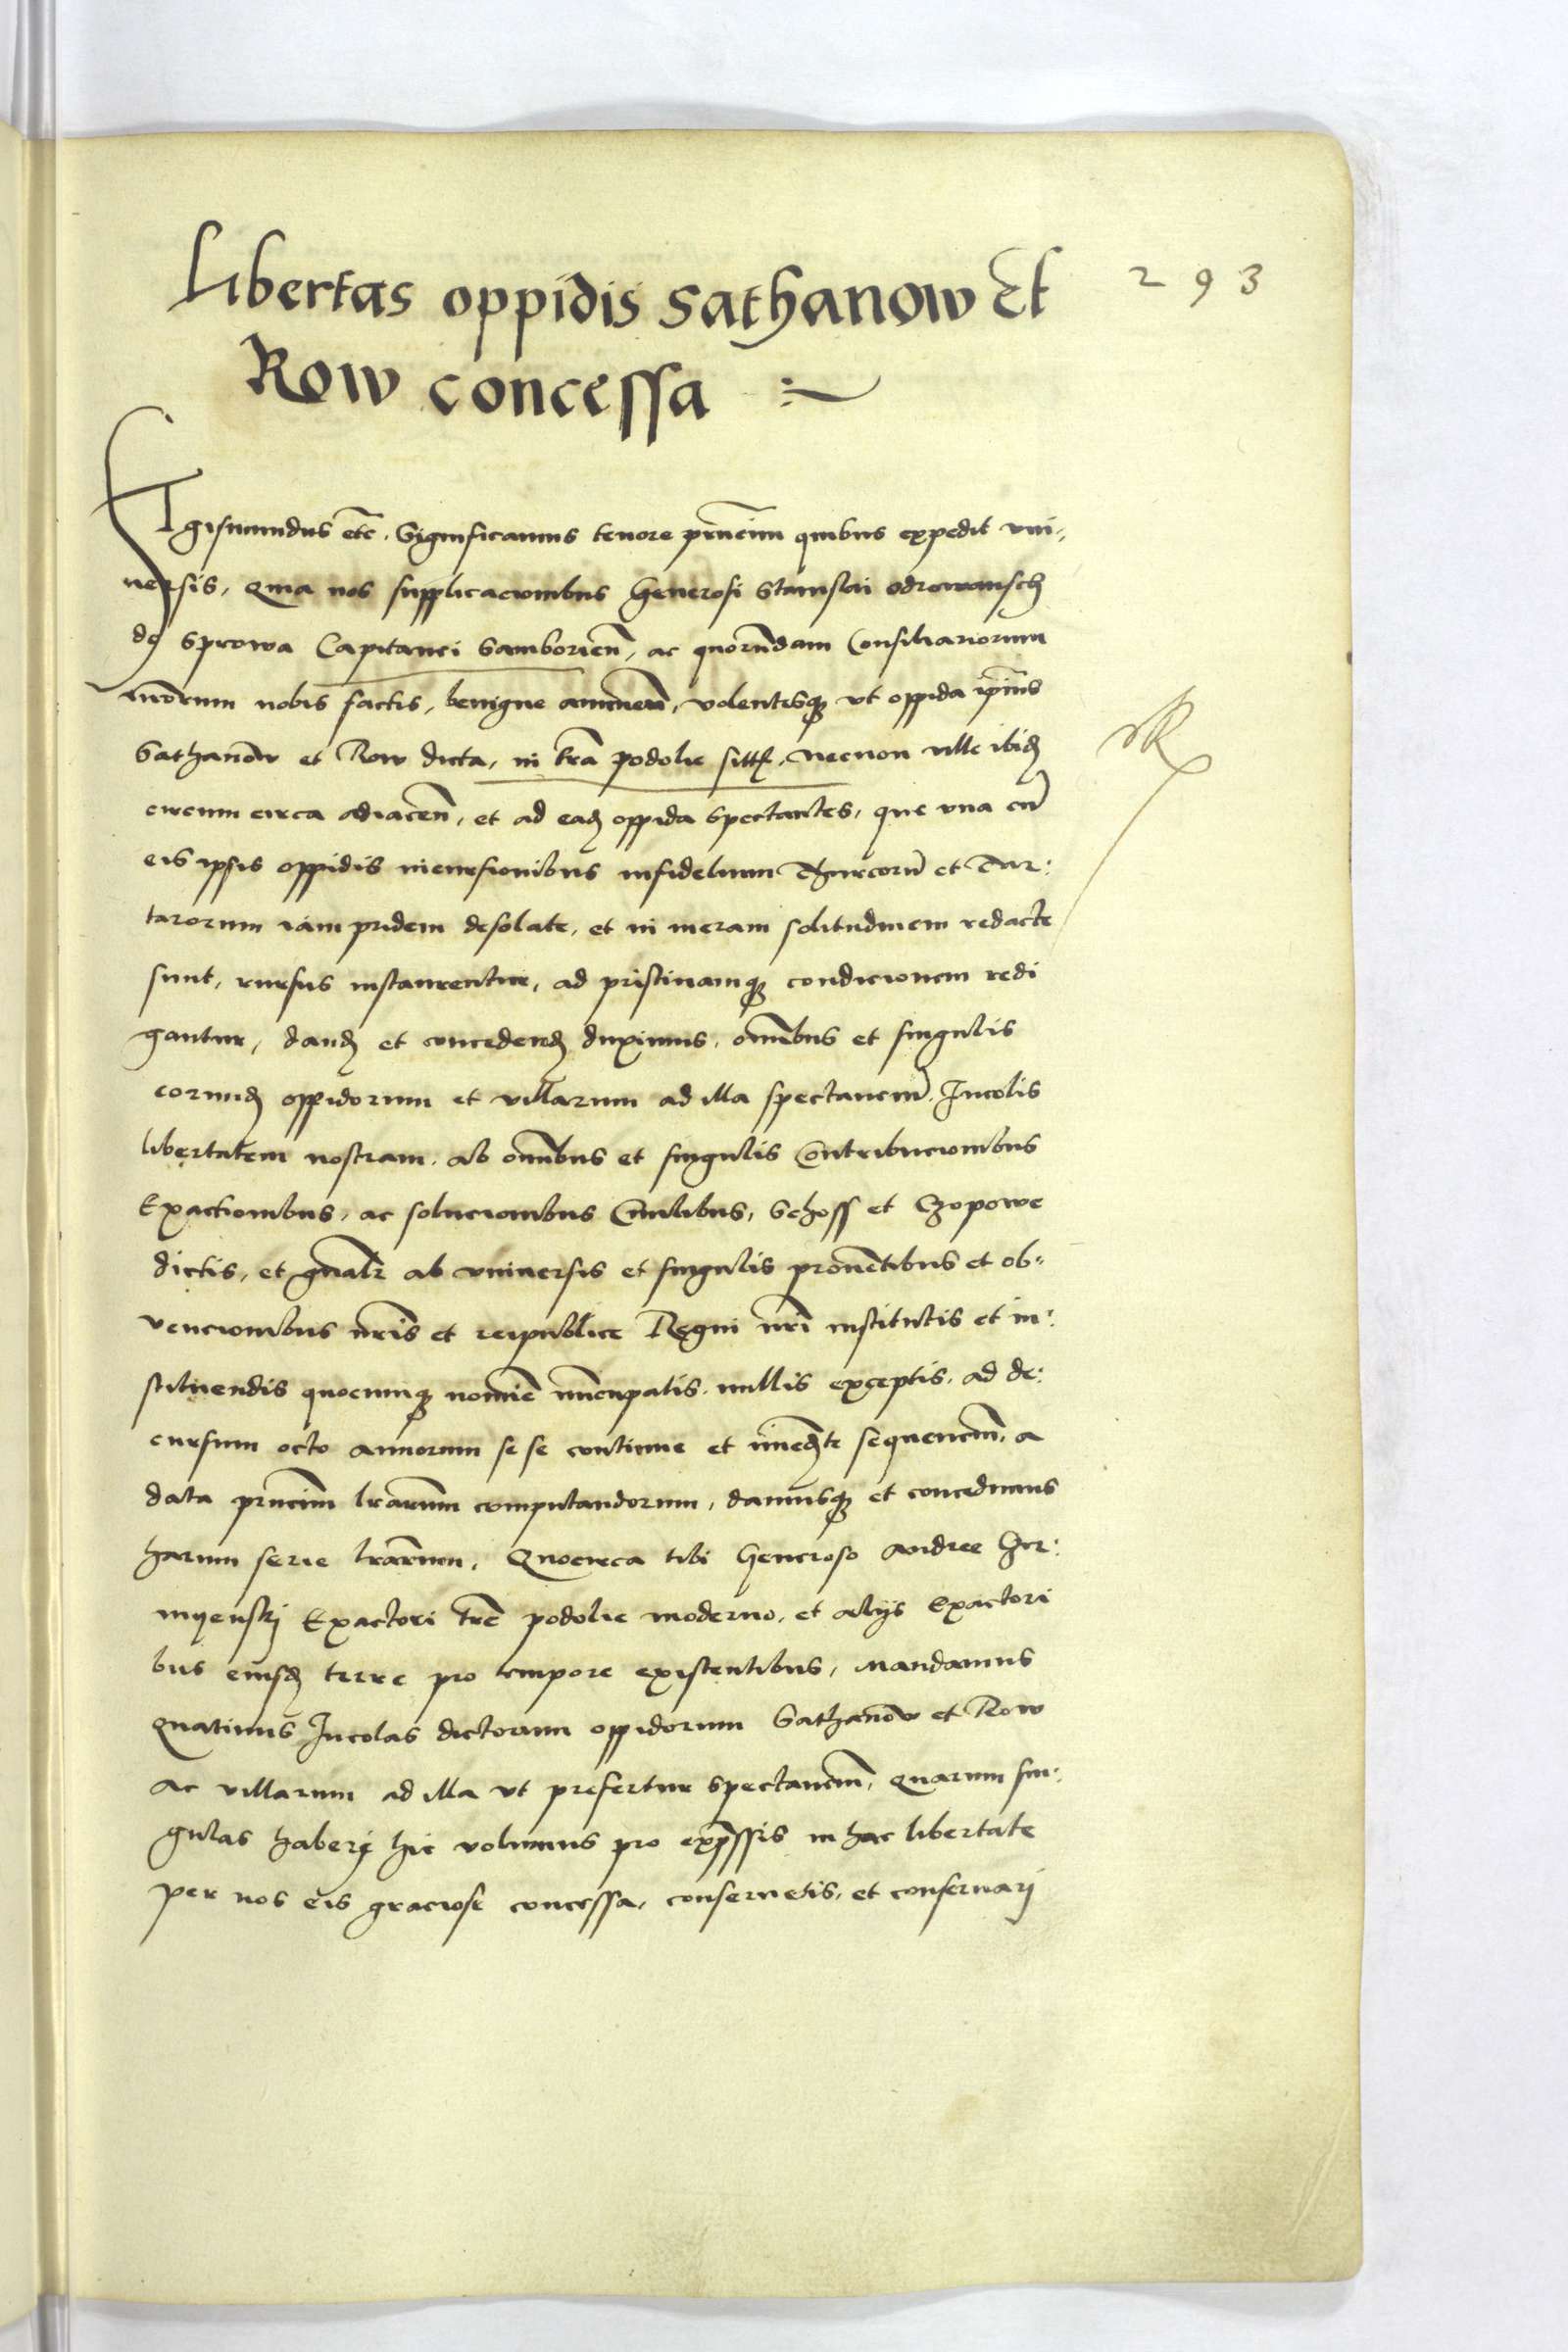 Libertas oppidis Sathanow Et
293
Row concessa
Sigismundus etc̃. Significamus tenore pñcium quibus expedit vni-
uersis, Quia nos supplicacionibus Generosi Stanislai odrowansch
de Sprowa Capitanei Samborieñ, ac quorundam Consiliariorum
nr̃orum nobis factis, benigne annueñ, volentesq; vt oppida ip̃ius
Sathanow et Row dicta, in tr̃a podolie sitt, necnon ville ibid
circum circa adiaceñ, et ad ead oppida spectantes, que vna cũ
eis ipsis oppidis incursionibus infidelium Thurcorũ et Tar:
tarorum iam pridem desolate, et in meram solitudinem redacte
sunt, rursus instaurentur, ad pristinamq; condicionem redi
gantur, dand et concedend duximus, om̃ibus et singulis
eorund oppidorum et villarum ad illa spectanciũ Incolis
libertatem nostram, ab om̃ibus et singulis Contribucionibus
Exactionibus, ac solucionibus Ciuilibus, Schoss et Czopowe
dictis, et gñalr ab vniuersis et singulis prouẽtibus et ob-
uencionibus nr̃is et reipublice Regni nr̃i institutis et in:
stituendis quocumq; nomĩe nũcupatis, nullis exceptis, ad de:
cursum octo annorum se se continue et ĩmediate sequenciũ, a
data pñcium lr̃arum computandorum, damusq; et concedimus
harum serie lr̃arum, Quocirca tibi Generoso Andree
Exactori tr̃e podolie moderno, et alijs Exactori
bus eiusd terre pro tempore existentibus, Mandamus
Quatinus Incolas dictorum oppidorum Sathanow et Row
Ac villarum ad illa vt prefertur spectanciũ, Quarum sin:
gulas haberj hic volumus pro exp̃ssis in hac libertate
per nos eis graciose concessa, conseruetis, et conseruarj